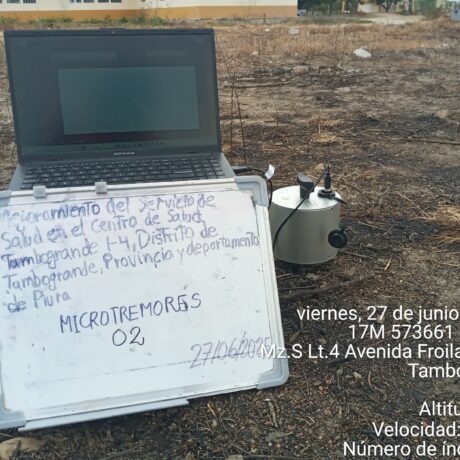 Mejoramiento del Servicio de
Salud en el Centro de Salud
Tambogrande I-4, Distrito de
Tambogrande, Provincia y departamento
de Piura
MICROTREMORES
02
27/06/202
viernes, 27 de junio
17M 573661
Mz.S Lt.4 Avenida Froila
Tambo
Altitu
Velocidad:
Número de índ